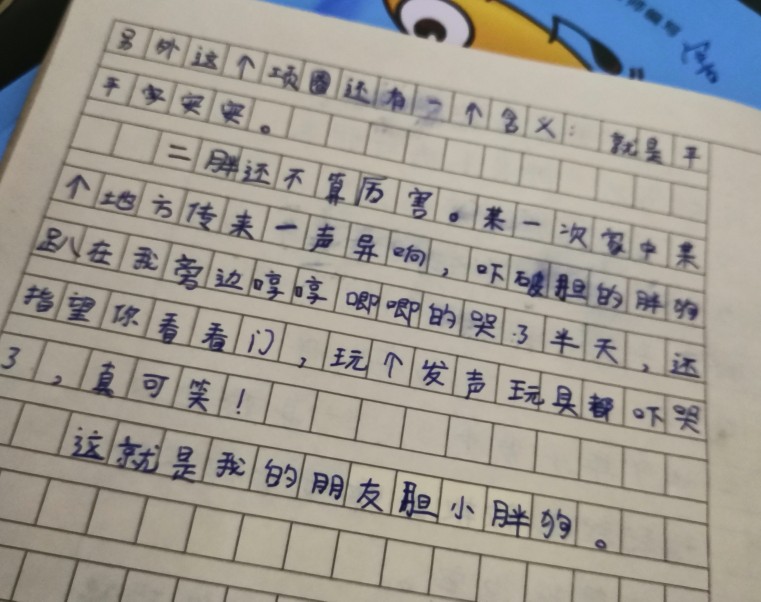 另外这个项圈还有一个含义：就是平
平安安实实。
二胖还不算厉害。某一次家中某
个地方传来一声异响，吓破胆的胖狗
趴在我旁边哼哼唧唧的哭了半天，还
指望你看看门，玩个发声玩具都吓哭
了，真可笑！
这就是我的朋友胆小胖狗。